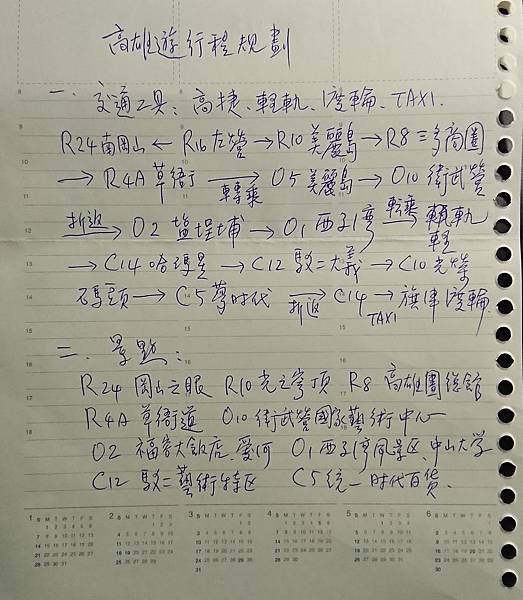 高雄遊行程规劃
一. 交通工具：高捷、輕軌、渡輪、TAXI.
R24南岡山 ← R16左營 → R10 美麗島 → R8 三多商圈
→ R4A 草衙 轉乘→ O5 美麗島 → O10 衛武營
折返→ O2 塩埕埔 → O1 西子湾 転乘→ 輕軌
→ C14 哈瑪星 → C12 駁二大義 → C10 光榮
碼頭 → C5 夢时代 折返→ C14 TAXI→ 旗津渡輪
二. 景點：
R24 岡山之眼 R10 光之穹頂 R8 高雄圖總館
R4A 草衙道 O10 衛武營國家藝術中心
O2 福客大飯店、愛河 O1 西子湾風景区、中山大学
C12 駁二藝術特区 C5 統一时代百貨.
1 2 3 4 5 6
S M T W T F S